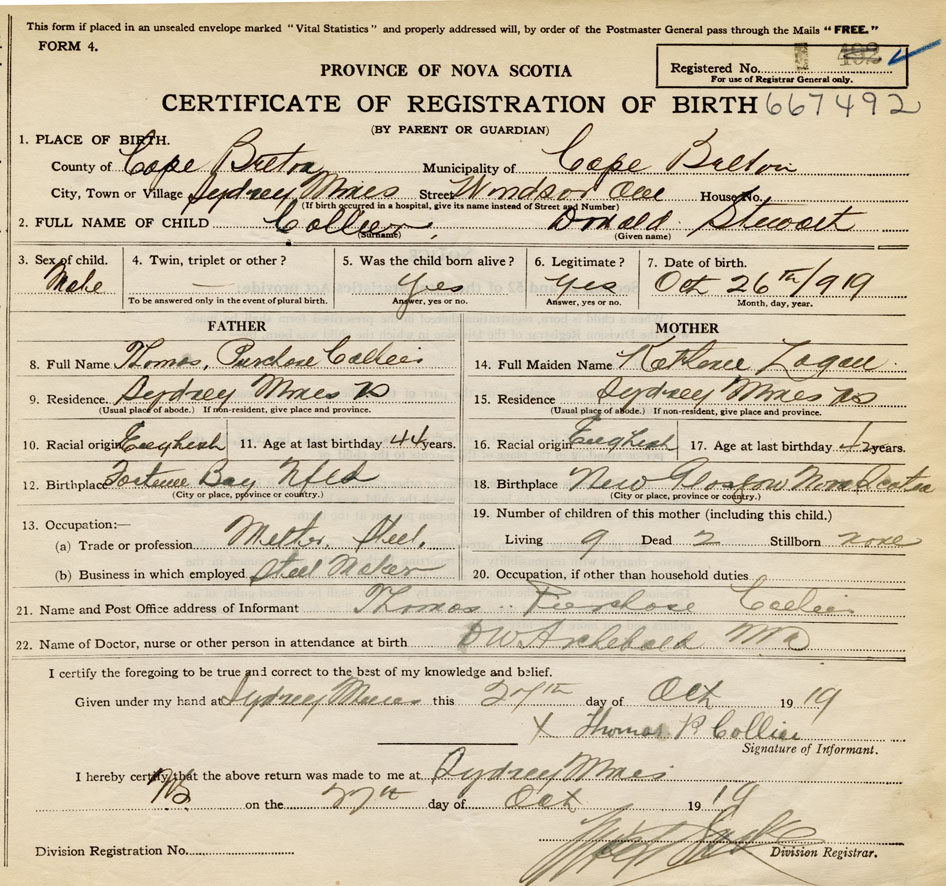 This form if placed in an unsealed envelope marked "Vital Statistics" and properly addressed will, by order of the Postmaster General pass through the Mails "FREE."
FORM 4.
Registered No. 492
For use of Registrar General only.
PROVINCE OF NOVA SCOTIA
CERTIFICATE OF REGISTRATION OF BIRTH 667492
(BY PARENT OR GUARDIAN)
1. PLACE OF BIRTH.
County of Cape Breton Municipality of Cape Breton
City, Town or Village Sydney Mines Street Windsor Ave House No.
(If birth occurred in a hospital, give its name instead of Street and Number)
2. FULL NAME OF CHILD Collier, Donald Stewart
(Surname) (Given name)
3. Sex of child. Male
4. Twin, triplet or other? —
To be answered only in the event of plural birth.
5. Was the child born alive? Yes
Answer, yes or no.
6. Legitimate? Yes
Answer, yes or no.
7. Date of birth. Oct 26th/1919
Month, day, year.
FATHER
8. Full Name Thomas, Purchase Collier
9. Residence. Sydney Mines NS
(Usual place of abode.) If non-resident, give place and province.
10. Racial origin English 11. Age at last birthday 44 years.
12. Birthplace Fortune Bay Nfld
(City or place, province or country.)
13. Occupation:—
(a) Trade or profession Melter, Steel.
(b) Business in which employed Steel Maker
MOTHER
14. Full Maiden Name Logan
15. Residence Sydney Mines NS
(Usual place of abode.) If non-resident, give place and province.
16. Racial origin English 17. Age at last birthday 42 years.
18. Birthplace New Glasgow Nova Scotia
(City or place, province or country.)
19. Number of children of this mother (including this child.)
Living 9 Dead 2 Stillborn none
20. Occupation, if other than household duties
21. Name and Post Office address of Informant Thomas Purchase Collier
22. Name of Doctor, nurse or other person in attendance at birth D W Archibald
I certify the foregoing to be true and correct to the best of my knowledge and belief.
Given under my hand at Sydney Mines this 27th day of Oct 1919
X Thomas P Collier
Signature of Informant.
I hereby certify that the above return was made to me at Sydney Mines
NS on the 27th day of Oct 1919
Division Registration No.
Division Registrar.